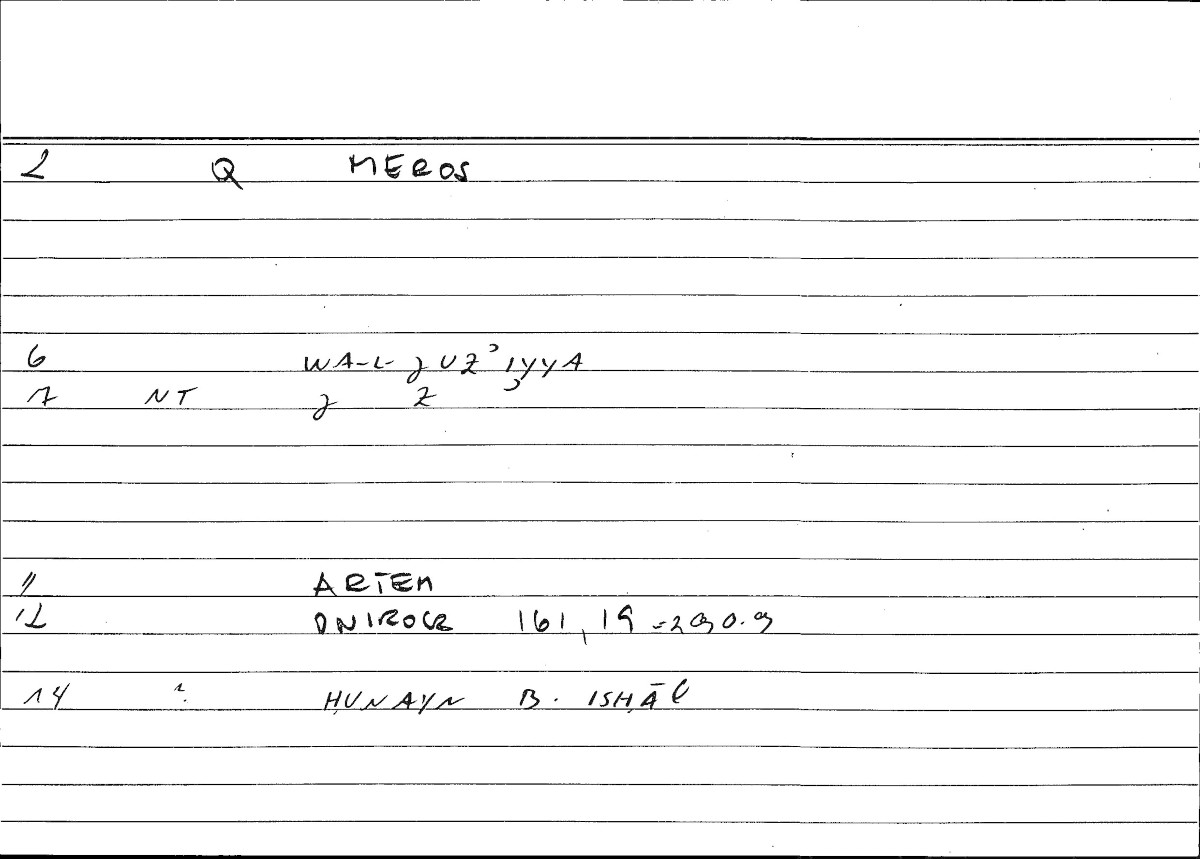 2 Q MEROS
6 WA-L-ǧUZʾIYYA
7 NT ǧ Z ʾ
11 ARTEM
12 ONIROCR 161,19 = 290.9
14 ? ḤUNAYN B. ISḤĀQ